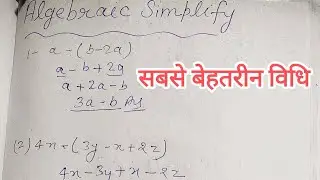 Algebraic Simplify
1- a - (b-2a)
a - b + 2a
a + 2a - b
3a - b Ans
सबसे बेहतरीन विधि
(2) 4x - (3y - x + 2z)
4x - 3y + x - 2z